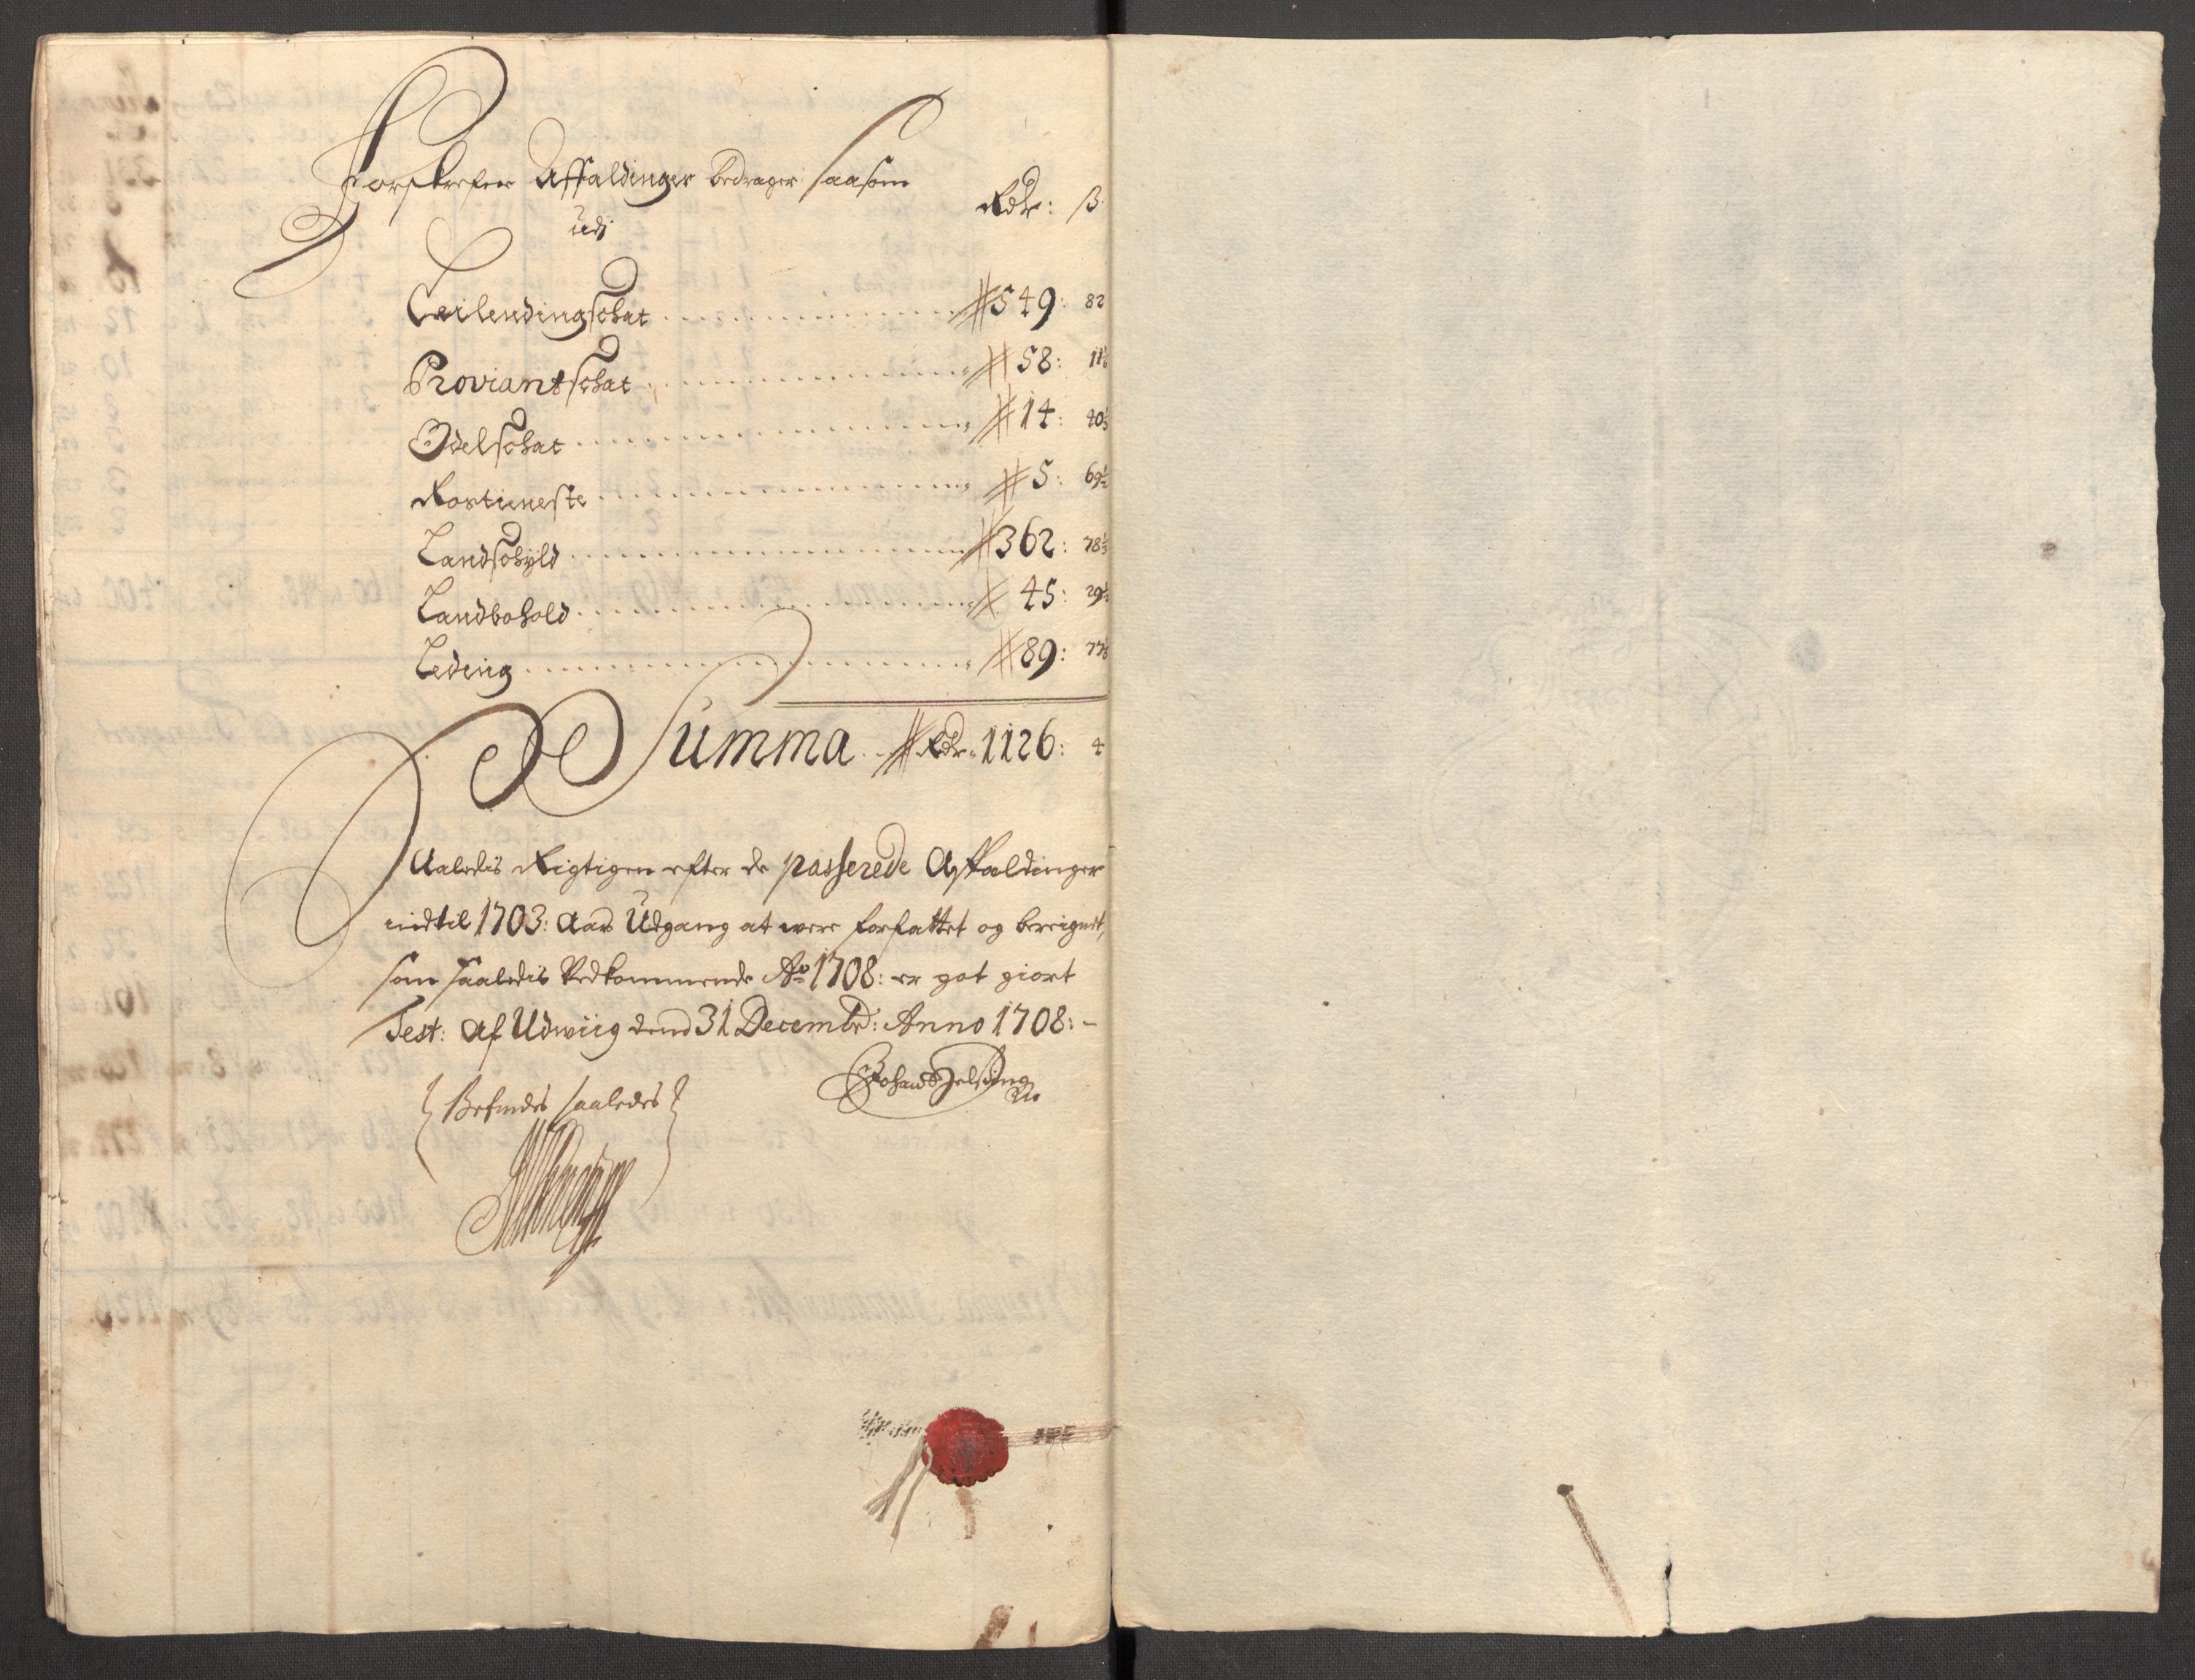 Forskrefne Affaldinger bedrager saasom
Rdr: ß
udj
Leilendingschat 549: 82
Proviantschat 58: 11
Odelschat 14: 40
Rostieneste 5: 69½
Landschyld 362: 78
Landbohold 45: 29
Leding 89: 77
Summa Rdr 1126: 4
Saaledis Rigtigen efter de passerede Affaldinger
indtil 1703: Aars Udgang at were forfattet og beregnet,
som saaledis Vedkommende Ao 1708: er got giort
Test: Af Udwiig dend 31 Decembr: Anno 1708:-
Befindes saaledes